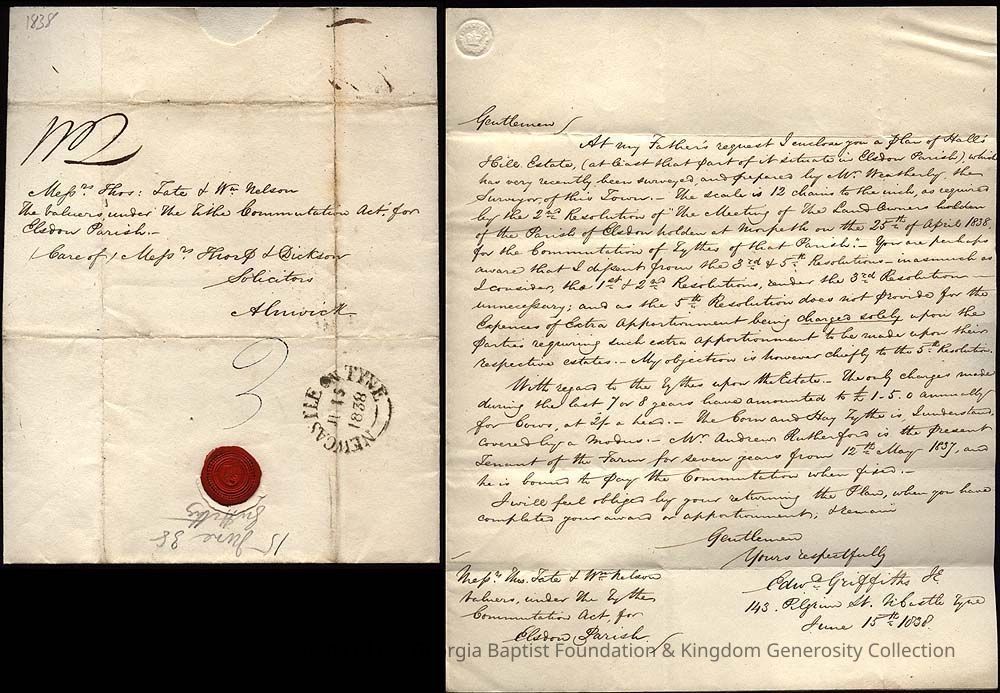 1838
Messrs Thos: Tate & Wm Nelson
The Valuers, under The Tithe Commutation Act, for
Elsdon Parish.—
Care of, Messrs Thorp & Dickson
Solicitors
Alnwick
3
NEWCASTLE ON TYNE
15
1838
15
June 38
Griffiths
Gentlemen
At my Father's request I enclose you a Plan of Hall's
Hill Estate, (at least that part of it situate in Elsdon Parish), which
has very recently been surveyed, and prepared by Mr. Weatherly, the
Surveyor, of this Town.— The scale is 12 chains to the inch, as required
by the 2nd Resolution of "The Meeting of The Land Owners holden
of the Parish of Elsdon holden at Morpeth on the 25th of April 1838,
for the Commutation of Tythes of that Parish:— You are perhaps
aware that I dissent from the 3rd & 5th Resolutions— inasmuch as
I consider, the 1st & 2nd Resolutions, render the 3rd Resolution
unnecessary; and as the 5th Resolution does not provide for the
Expences of Extra Apportionment being charged solely upon the
Parties requiring such extra apportionment to be made upon their
respective estates.— My objection is however chiefly to the 5th Resolution.
With regard to the Tythes upon the Estate.— The only charges made
during the last 7 or 8 years have amounted to £1-5.0 annually
for Cows, at 2/ a head.— The Corn and Hay Tythe is, I understand,
covered by a Modus:— Mr. Andrew Rutherford is the present
Tenant of the Farm for seven years from 12th May 1837, and
he is bound to pay the Commutation when fixed.—
I will feel obliged by your returning the Plan, when you have
completed your award or apportionment; & remain
Gentlemen
Yours respectfully
Edwd. Griffiths Jr.
143. Pilgrim St. NCastle Tyne
June 15th 1838.
Messrs Thos. Tate & Wm Nelson
Valuers, under The Tythe
Commutation Act, for
Elsdon Parish.
Georgia Baptist Foundation & Kingdom Generosity Collection